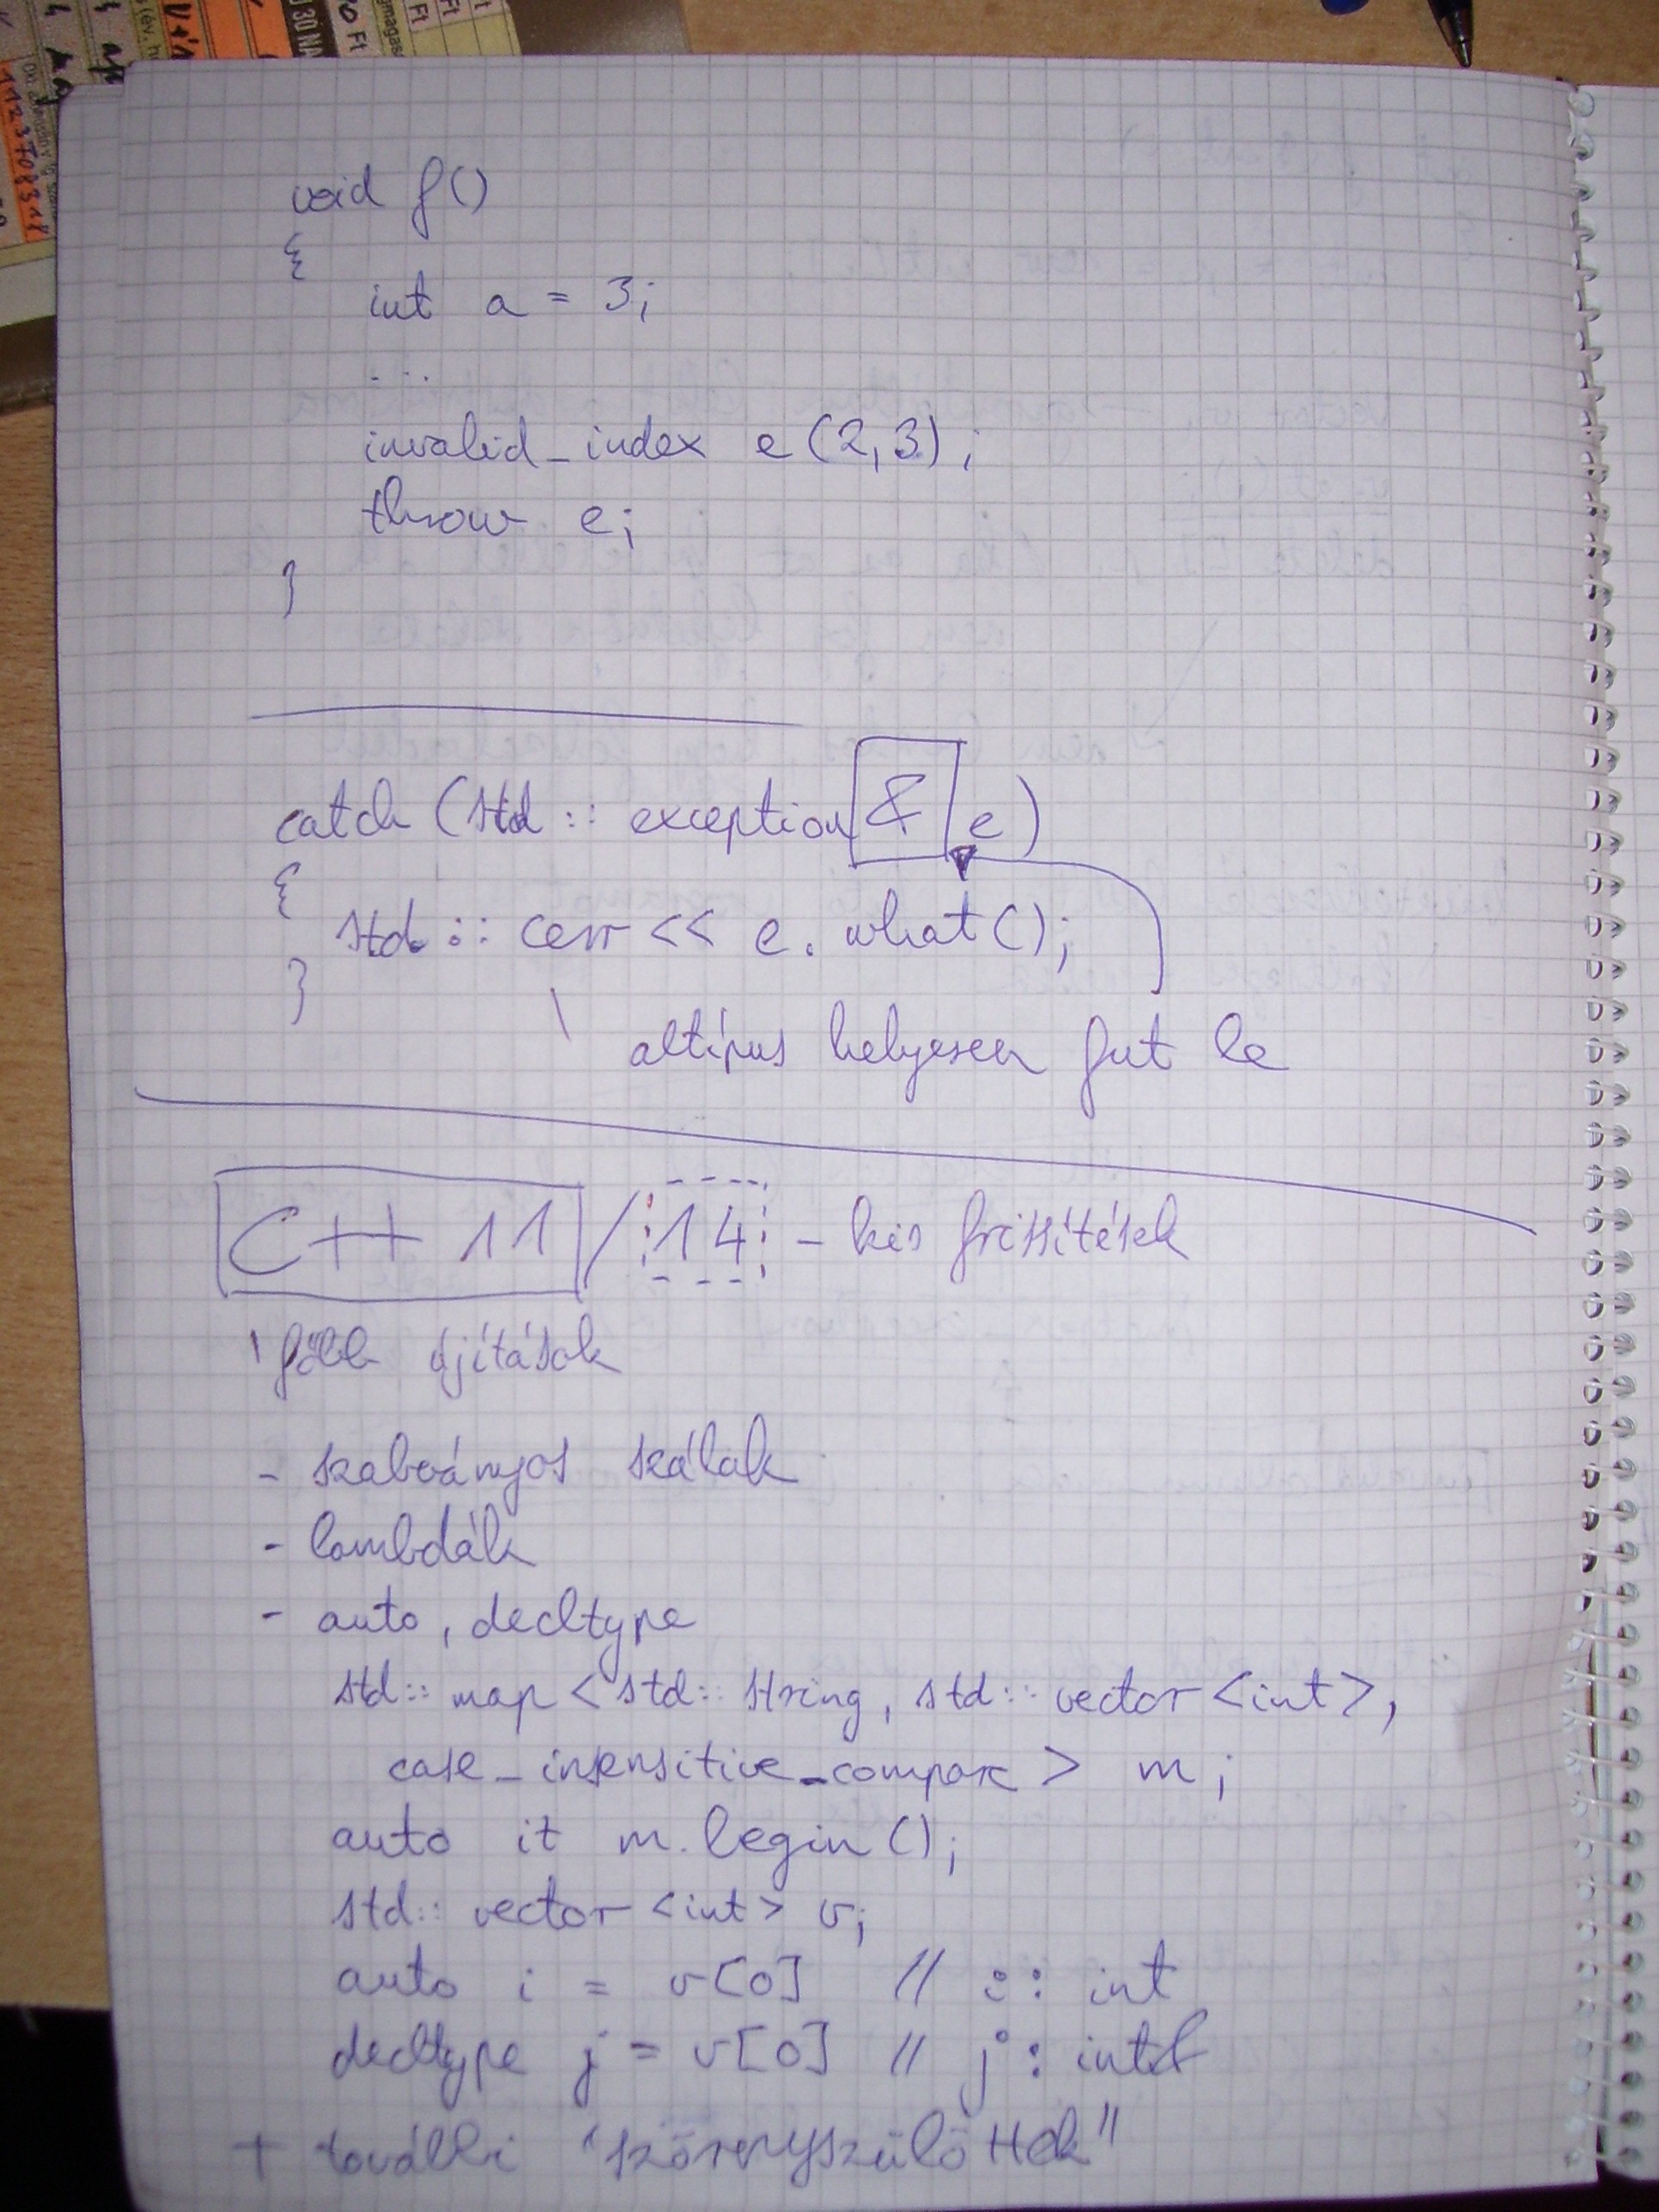 void f()
{
int a = 3;
...
invalid_index e(2,3);
throw e;
}
catch (std::exception & e)
{
std::cerr << e.what();
}
altípus helyesen fut le
C++ 11 / 14 - kis frissítések
főbb újítások
- szabványos szálak
- lambdák
- auto, decltype
std::map <std::string, std::vector <int>,
case_insensitive_compare > m;
auto it m.begin();
std::vector <int> v;
auto i = v[0] // i: int
decltype j = v[0] // j: int&
+ további "szörnyszülöttek"